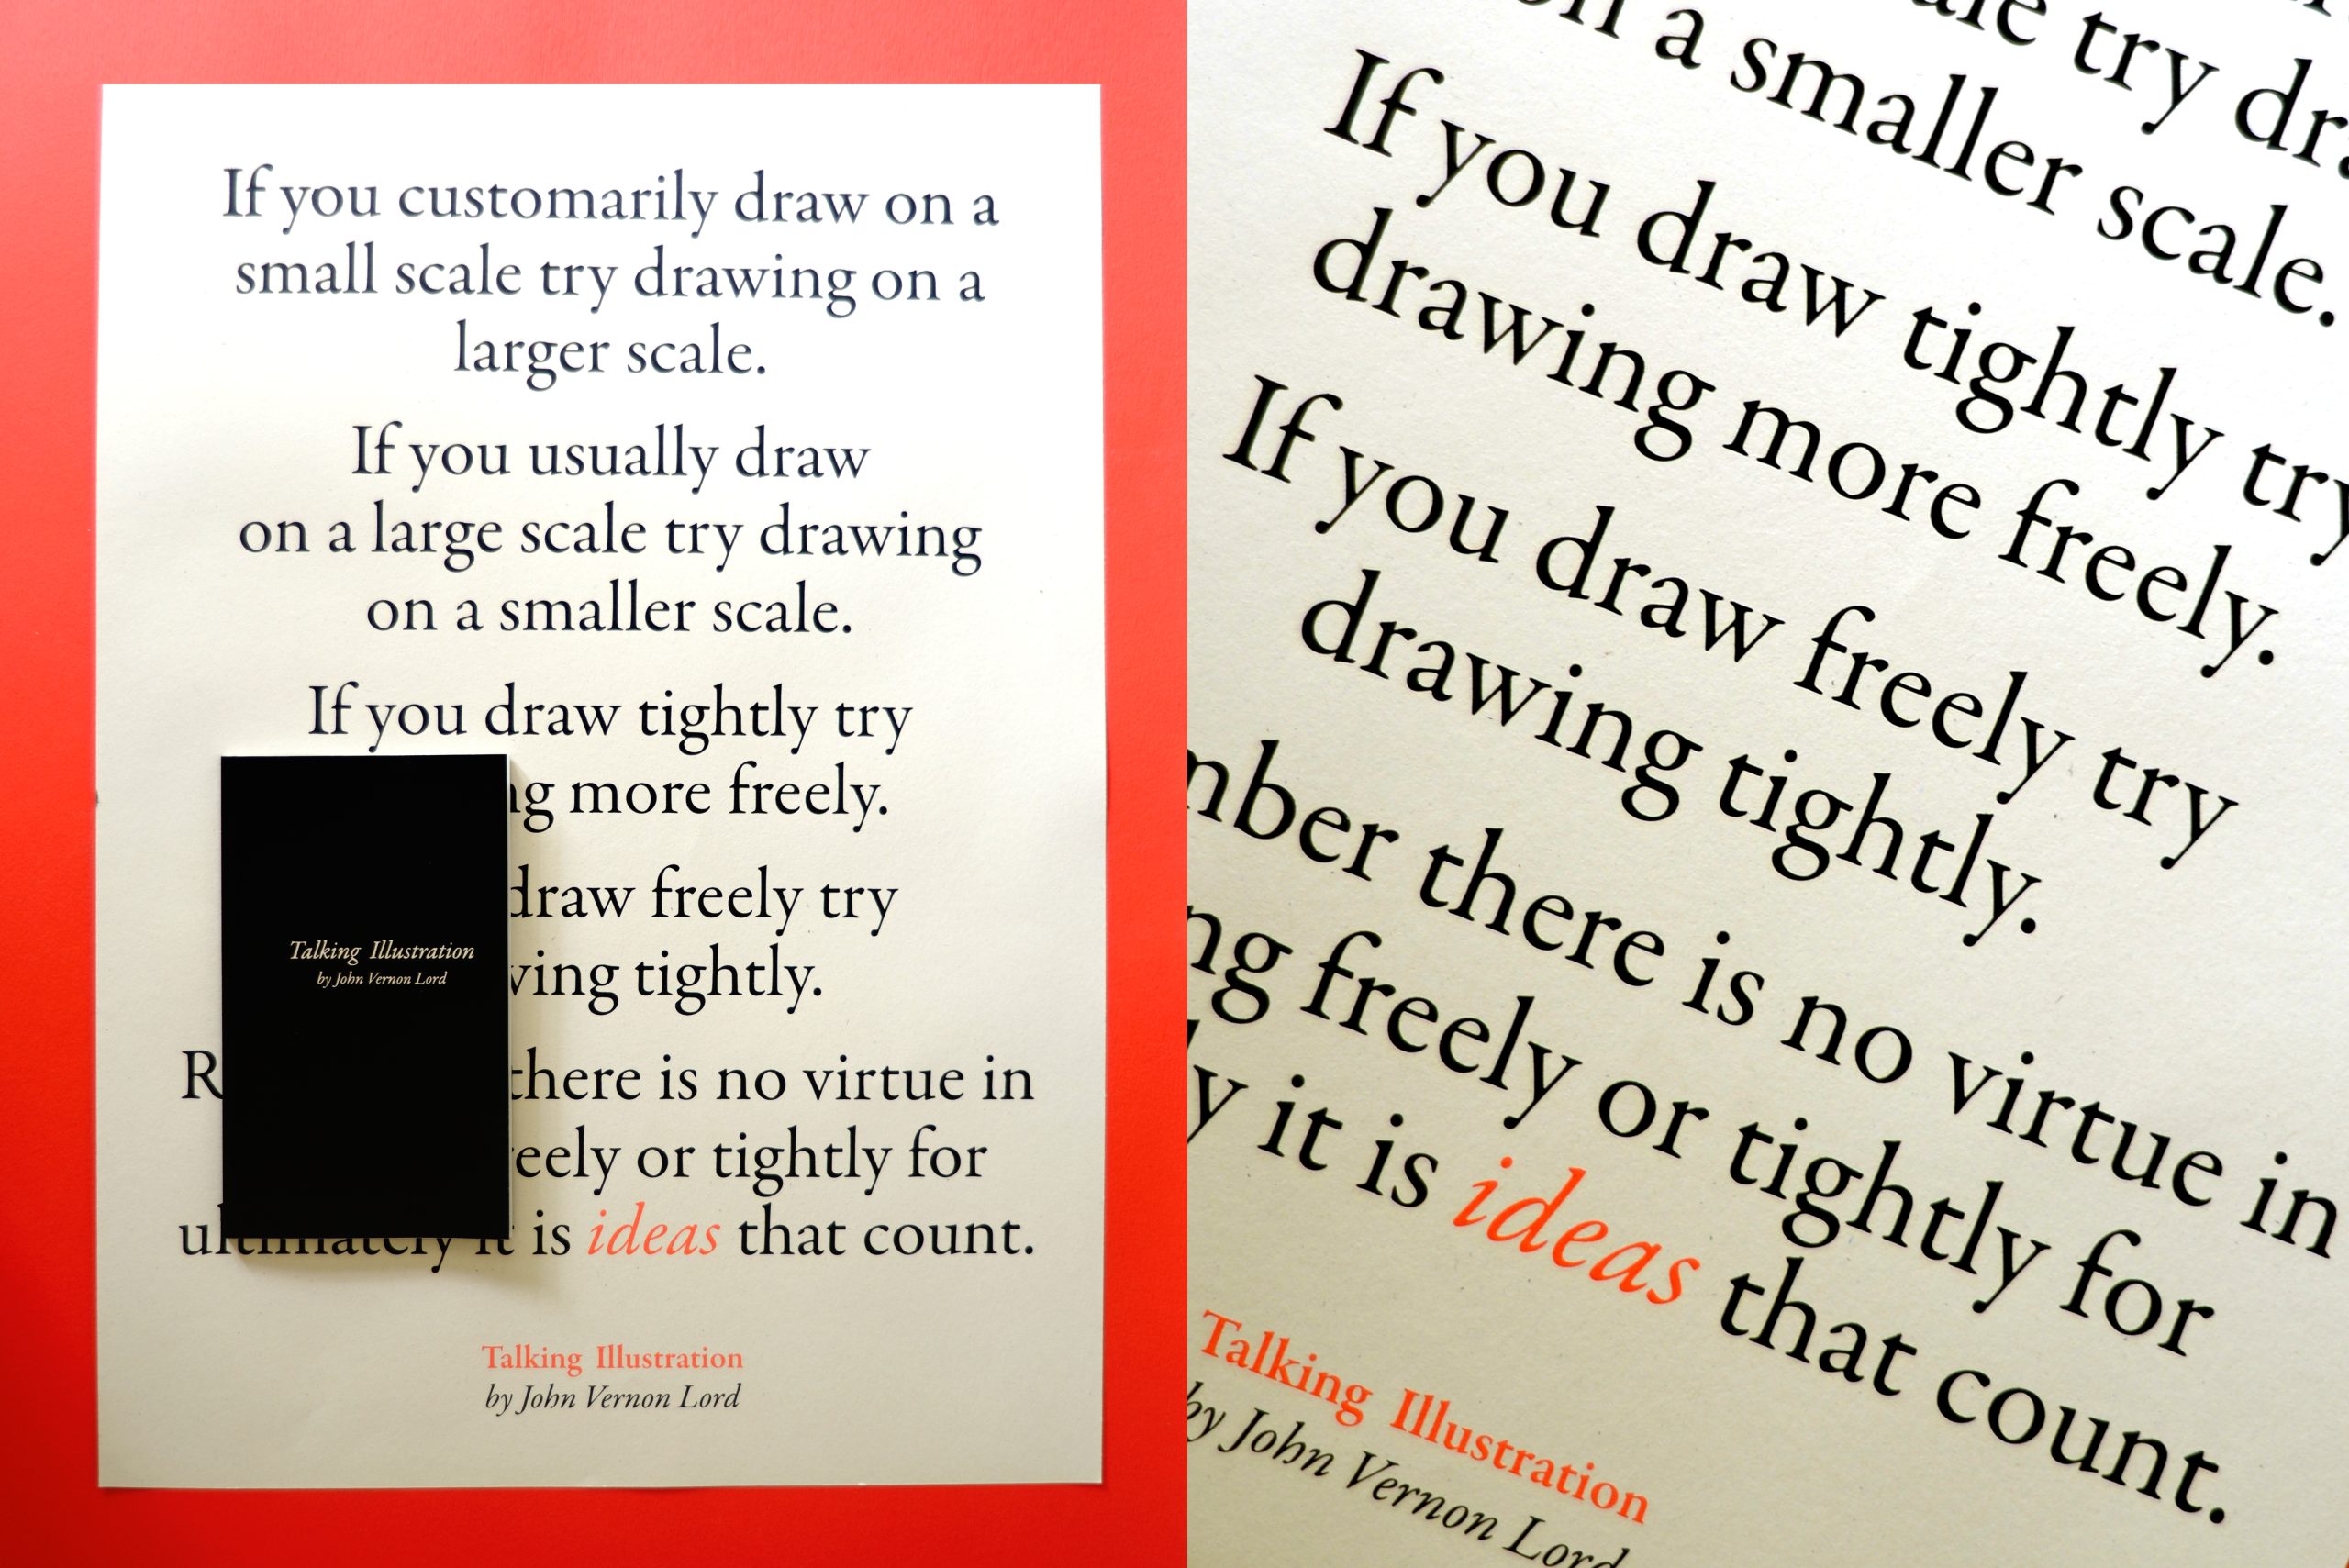 If you customarily draw on a
small scale try drawing on a
larger scale.
If you usually draw
on a large scale try drawing
on a smaller scale.
If you draw tightly try
more freely.
draw freely try
tightly.
there is no virtue in
or tightly for
ultimately it is ideas that count.
Talking Illustration
by John Vernon Lord
Talking Illustration
by John Vernon Lord
try
on a smaller scale.
If you draw tightly try
drawing more freely.
If you draw freely try
drawing tightly.
there is no virtue in
freely or tightly for
it is ideas that count.
Talking Illustration
by John Vernon Lord